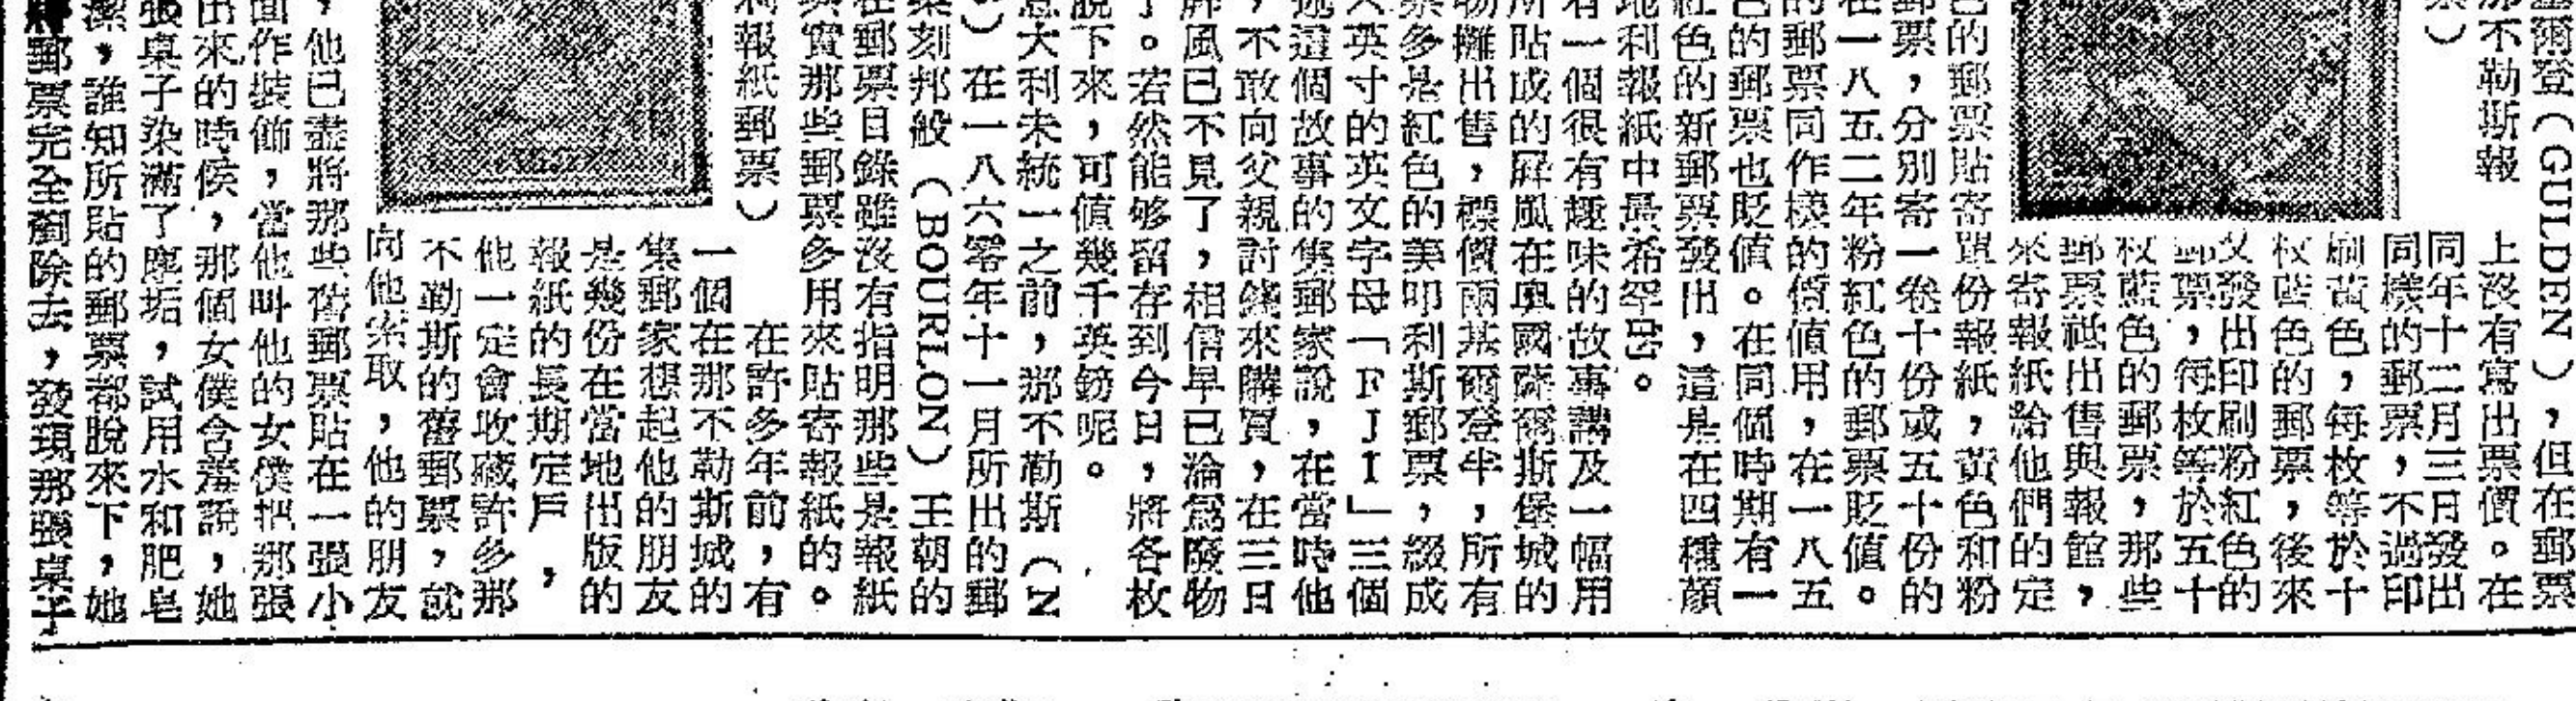 盾爾登(GULDEN)，但在郵票
上沒有寫出票價。在
同年十二月三日發出
同樣的郵票，不過印
刷黃色，每枚等於十
枚藍色的郵票，後來
又發出印刷粉紅色的
郵票，每枚等於五十
枚藍色的郵票，那些
郵票祗出售與報館，
來寄報紙給他們的定
那不勒斯報
票)
色的郵票貼寄單份報紙，黃色和粉
郵票，分別寄一卷十份或五十份的
在一八五二年粉紅色的郵票貶值。
的郵票同作樣的價值用，在一八五
色的郵票也貶值。在同個時期有一
紅色的新郵票發出，這是在四種顏
地利報紙中最希罕的。
有一個很有趣味的故事講及一幅用
所貼成的屏風在奧國薩爾斯堡城的
物攤出售，標價兩基爾登半，所有
票多是紅色的美叩利斯郵票，綴成
大英寸的英文字母「FJI」三個
述這個故事的集郵家說，在當時他
，不敢向父親討錢來購買，在三日
屏風已不見了，相信早已淪爲廢物
了。若然能够留存到今日，將各枚
脫下來，可值幾千英鎊呢。
意大利未統一之前，那不勒斯(N
S)在一八六零年十一月所出的郵
樂刻邦般(BOURLON)王朝的
在郵票目錄雖沒有指明那些是報紙
其實那些郵票多用來貼寄報紙的。
利報紙郵票)
在許多年前，有
一個在那不勒斯城的
集郵家想起他的朋友
是幾份在當地出版的
報紙的長期定戶，
他一定會收藏許多那
不勒斯的舊郵票，就
向他索取，他的朋友
，他已盡將那些舊郵票貼在一張小
面作裝飾，當他叫他的女僕把那張
出來的時侯，那個女僕含羞說，她
張桌子染滿了塵垢，試用水和肥皂
潔，誰知所貼的郵票都脫來下，她
將郵票完全刮除去，發現那張桌子